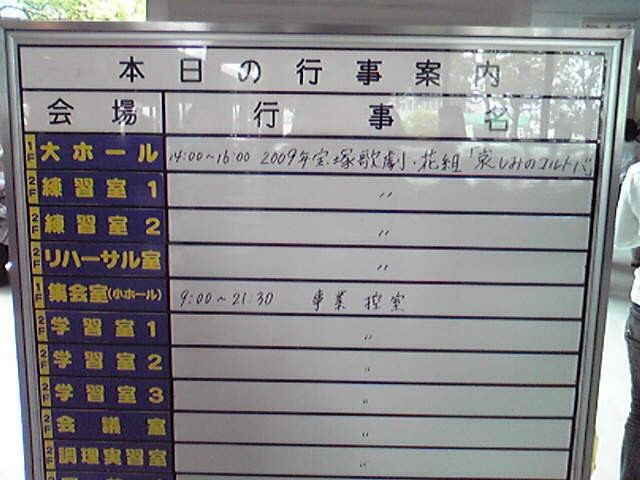 本日の行事案内
会場 行事名
1F 大ホール 14:00~16:00 2009年宝塚歌劇・花組「哀しみのコルドバ」
2F 練習室1 〃
2F 練習室2 〃
2F リハーサル室 〃
1F 集会室(小ホール) 9:00~21:30 事業 控室
2F 学習室1 〃
2F 学習室2 〃
2F 学習室3 〃
2F 会議室 〃
2F 調理実習室 〃